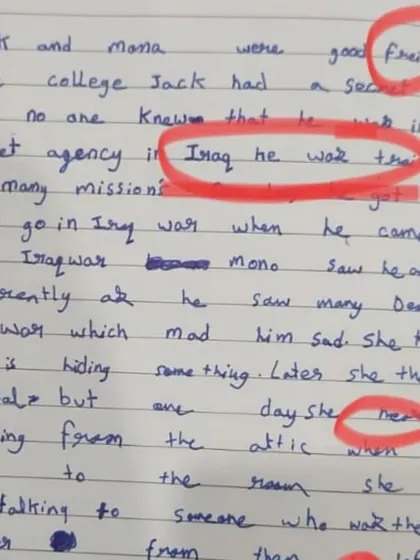 k and mona were good frei
college Jack had a secret
no one knew that he was in
et agency in Iraq he waz trai
many mission's he got
go in Irq war when he came
Iraqwar mono saw he a
rently az he saw many Dea
war which mad him sad. She t
is hiding something. Later she th
al but one day she hea
ing from the attic when
to the room she
talking to someone who waz the
er from than